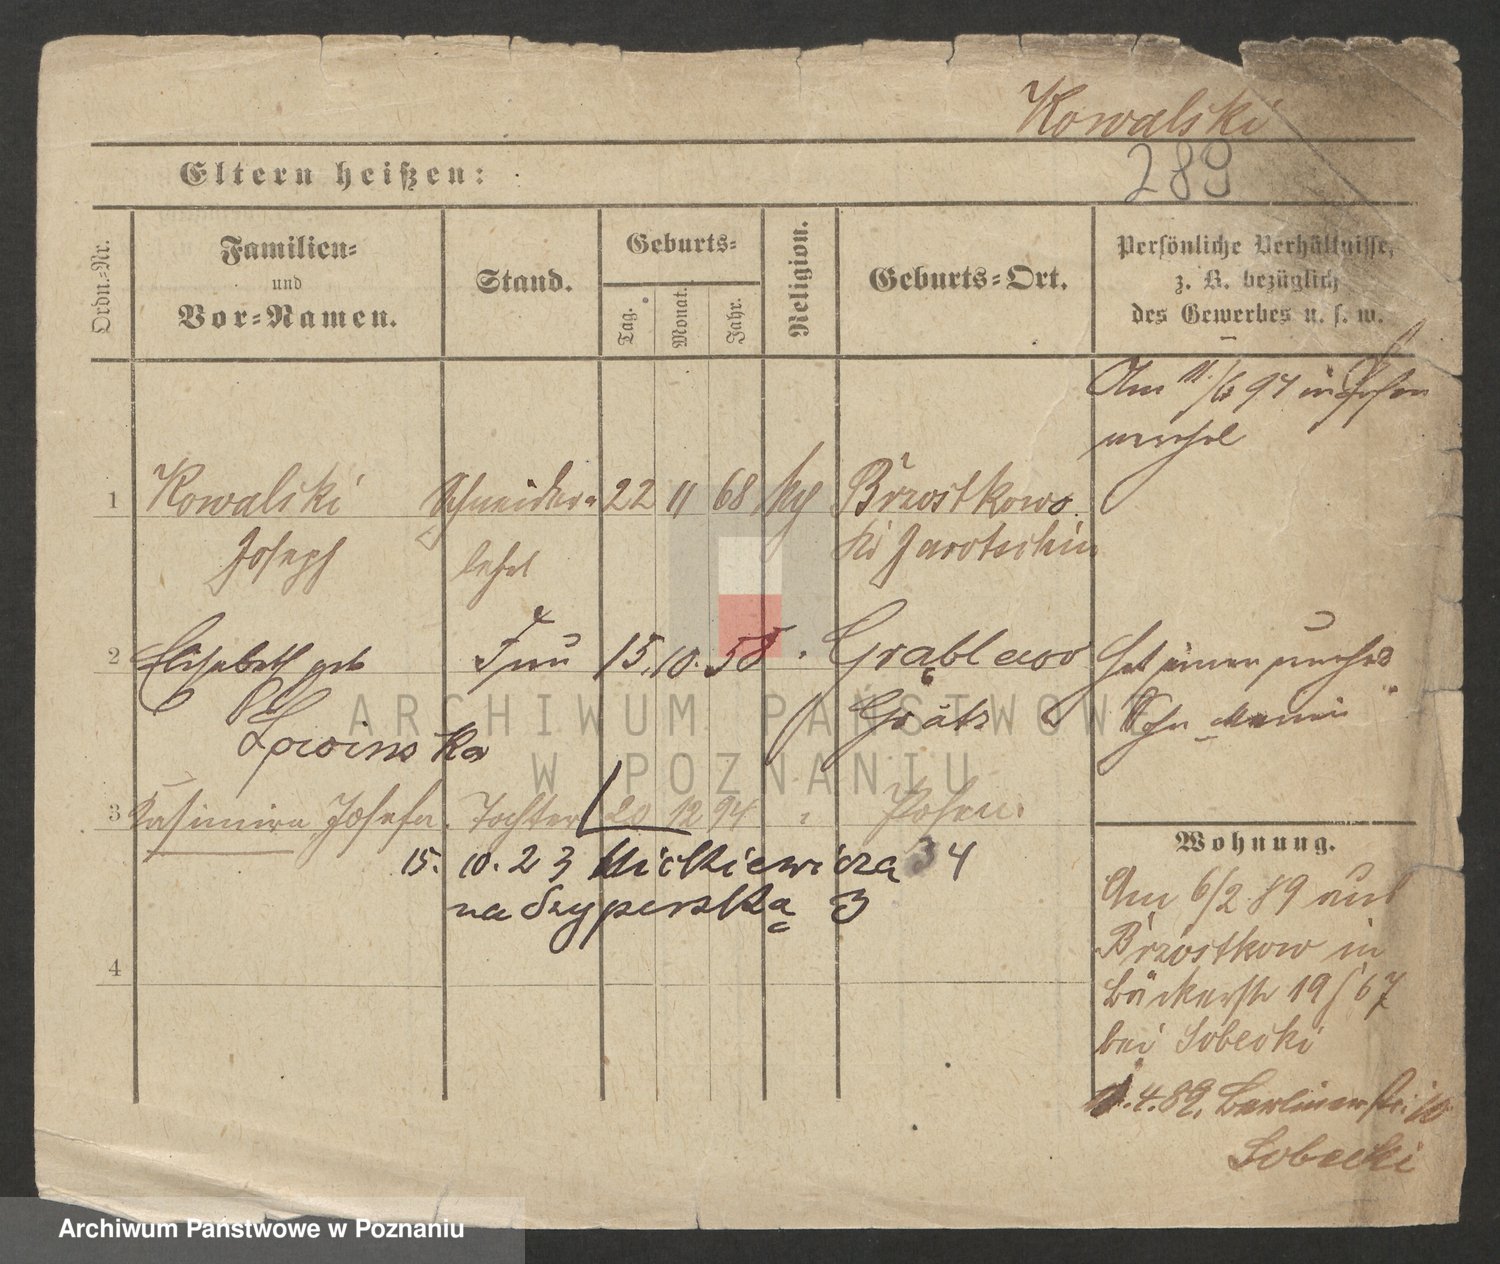 Kowalski
289
Eltern heißen:
Ordn.-Nr.
Familien-
und
Vor-Namen.
Stand.
Geburts-
Tag.
Monat.
Jahr.
Religion.
Geburts-Ort.
Persönliche Verhältnisse,
z. B. bezüglich
des Gewerbes u. s. w.
Am 11/6 97 in Posen
1 Kowalski Schneider- 22 11 68 Brzostkowo
Joseph Jarotschin
2 Elisabeth geb Frau 15. 10. 58 Grąblewo
Grätz
3 Kasimira Josefa. Tochter 20 12 94 Posen.
15. 10. 23 Mickiewicza 34
na Szyperską 3
4
Wohnung.
Am 6/2 89 aus
Brzostkow in
Bäckerstr 19/67
bei Sobecki
4.89. Berlinerstr. 10
Sobecki
ARCHIWUM PAŃSTWOWE
W POZNANIU
Archiwum Państwowe w Poznaniu